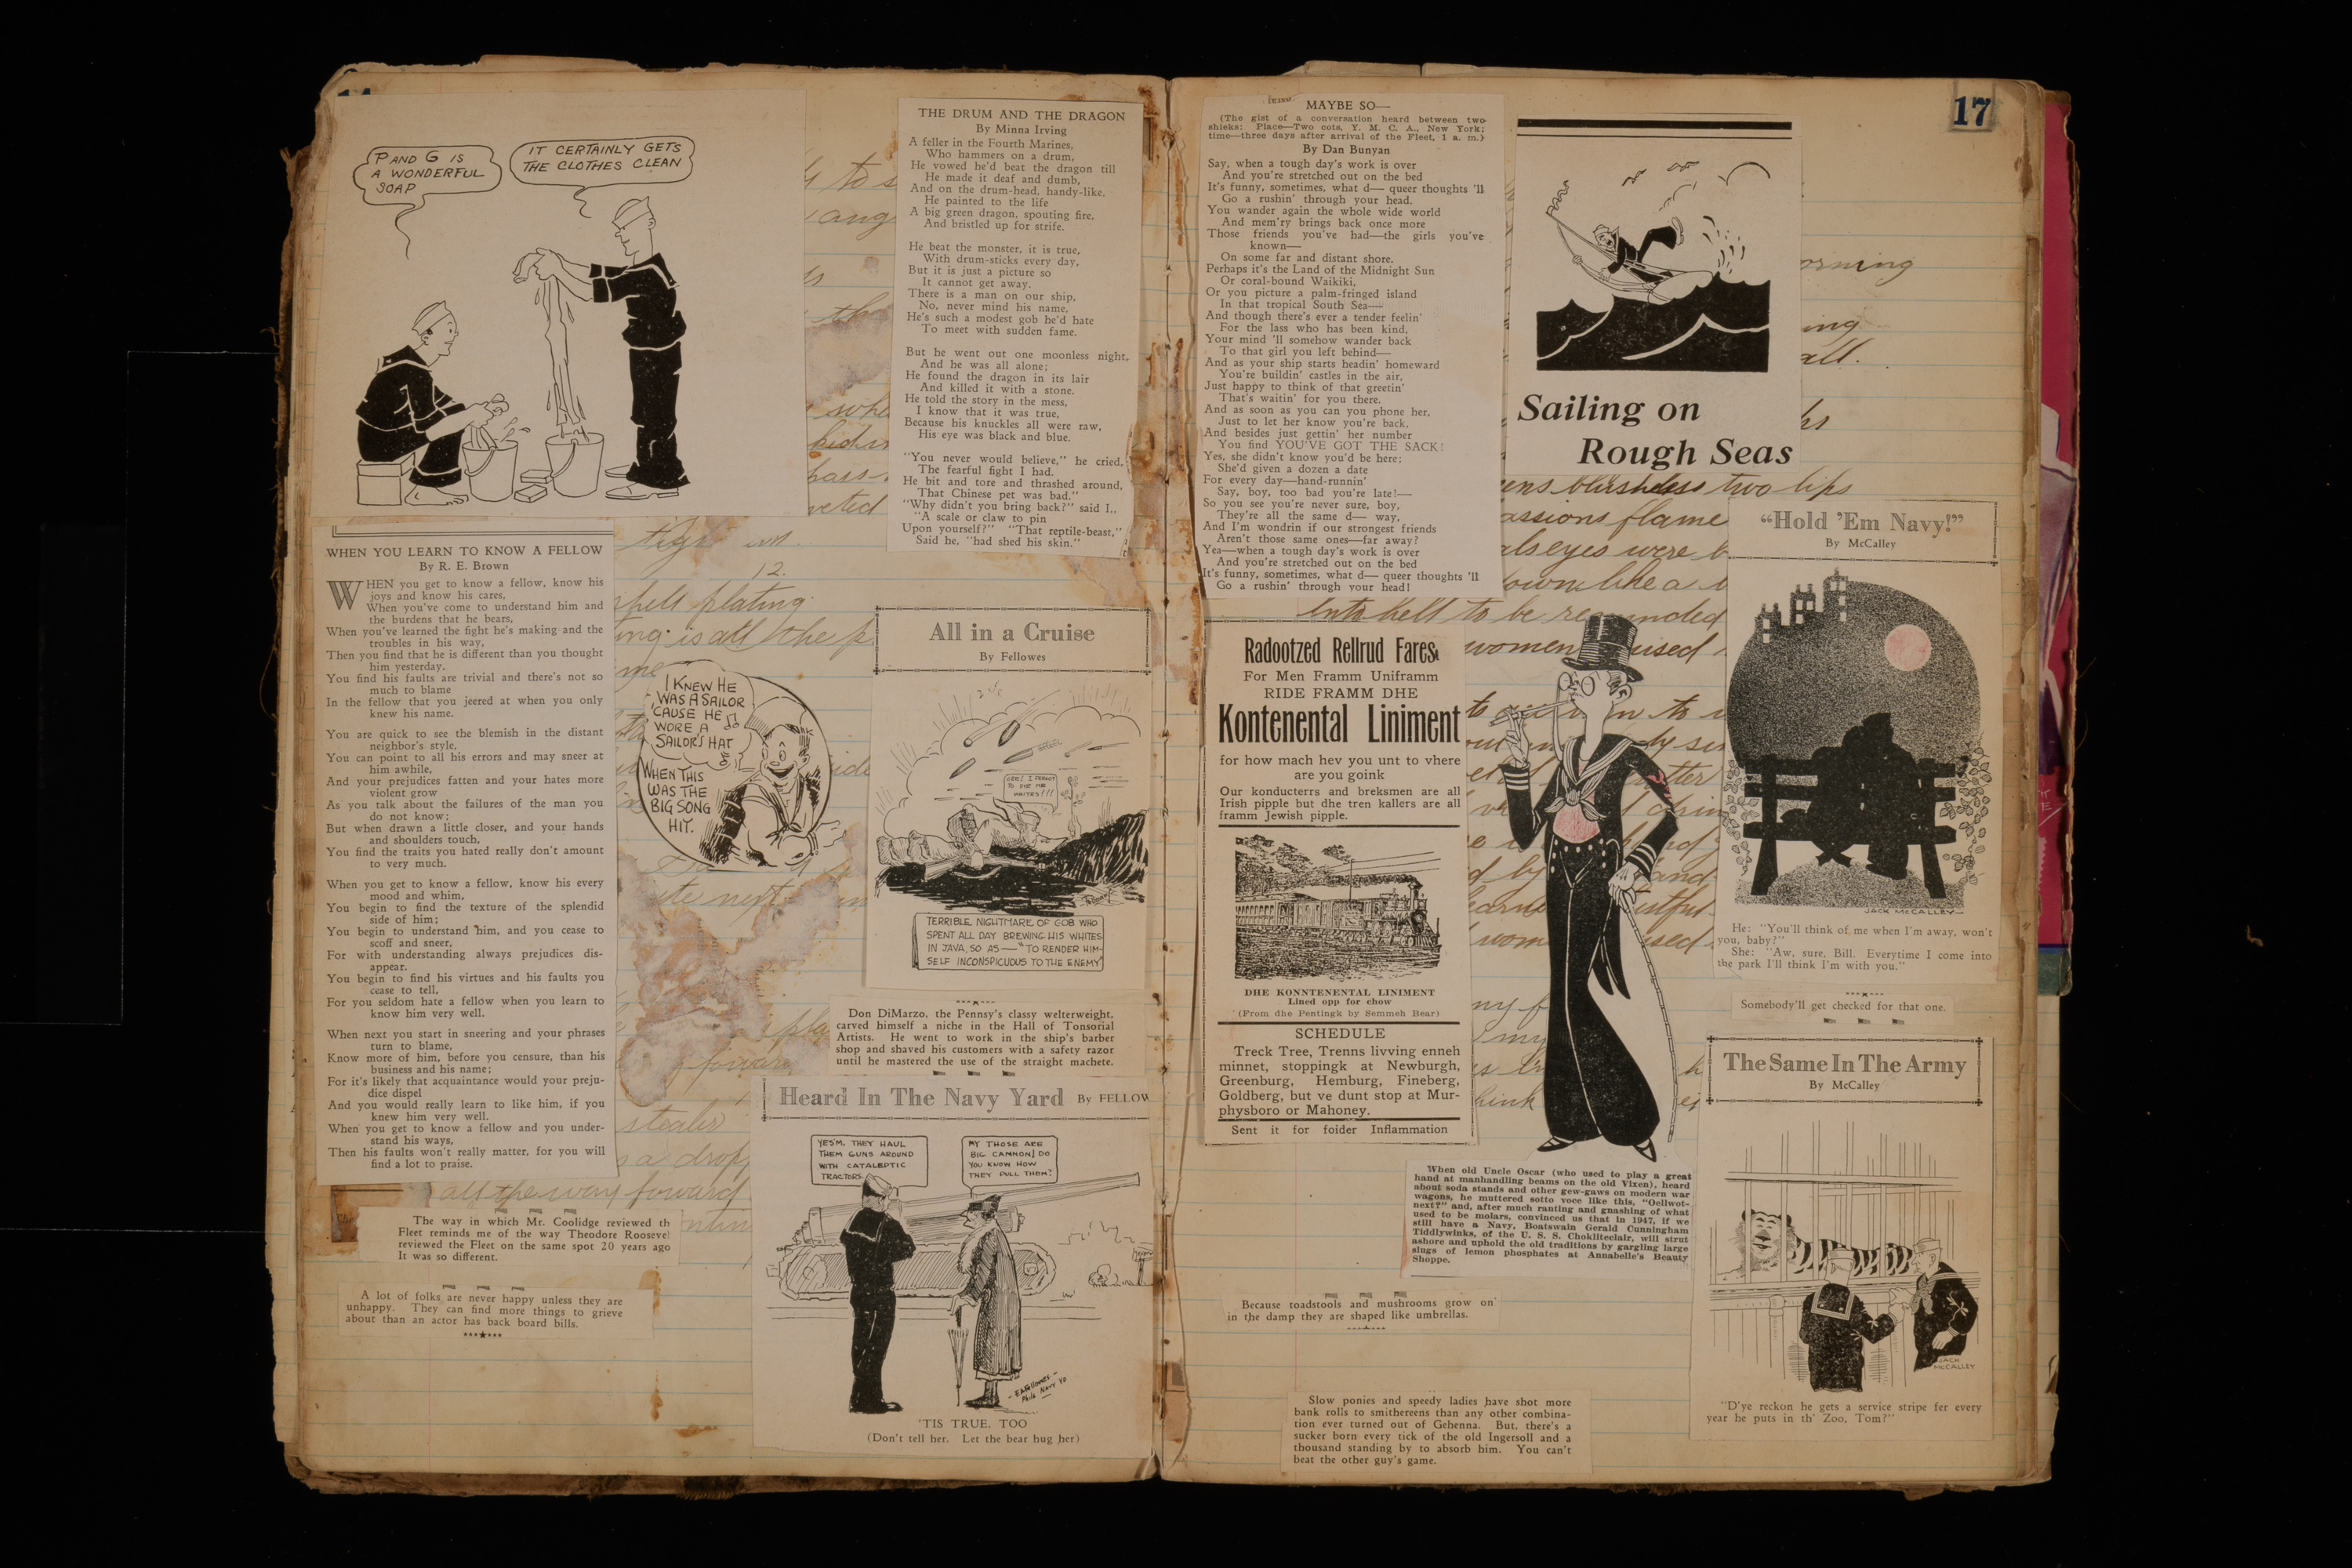 P AND G IS
A WONDERFUL
SOAP
IT CERTAINLY GETS
THE CLOTHES CLEAN
WHEN YOU LEARN TO KNOW A FELLOW
By R. E. Brown
WHEN you get to know a fellow, know his
joys and know his cares,
When you've come to understand him and
the burdens that he bears,
When you've learned the fight he's making and the
troubles in his way,
Then you find that he is different than you thought
him yesterday.
You find his faults are trivial and there's not so
much to blame
In the fellow that you jeered at when you only
knew his name.
You are quick to see the blemish in the distant
neighbor's style,
You can point to all his errors and may sneer at
him awhile,
And your prejudices fatten and your hates more
violent grow
As you talk about the failures of the man you
do not know;
But when drawn a little closer, and your hands
and shoulders touch,
You find the traits you hated really don't amount
to very much.
When you get to know a fellow, know his every
mood and whim,
You begin to find the texture of the splendid
side of him;
You begin to understand him, and you cease to
scoff and sneer,
For with understanding always prejudices dis-
appear.
You begin to find his virtues and his faults you
cease to tell,
For you seldom hate a fellow when you learn to
know him very well.
When next you start in sneering and your phrases
turn to blame,
Know more of him, before you censure, than his
business and his name;
For it's likely that acquaintance would your preju-
dice dispel
And you would really learn to like him, if you
knew him very well.
When you get to know a fellow and you under-
stand his ways,
Then his faults won't really matter, for you will
find a lot to praise.
The way in which Mr. Coolidge reviewed th
Fleet reminds me of the way Theodore Roosevel
reviewed the Fleet on the same spot 20 years ago
It was so different.
A lot of folks are never happy unless they are
unhappy. They can find more things to grieve
about than an actor has back board bills.
THE DRUM AND THE DRAGON
By Minna Irving
A feller in the Fourth Marines,
Who hammers on a drum,
He vowed he'd beat the dragon till
He made it deaf and dumb,
And on the drum-head, handy-like,
He painted to the life
A big green dragon, spouting fire,
And bristled up for strife.
He beat the monster, it is true,
With drum-sticks every day,
But it is just a picture so
It cannot get away.
There is a man on our ship,
No, never mind his name,
He's such a modest gob he'd hate
To meet with sudden fame.
But he went out one moonless night,
And he was all alone;
He found the dragon in its lair
And killed it with a stone.
He told the story in the mess,
I know that it was true,
Because his knuckles all were raw,
His eye was black and blue.
"You never would believe," he cried,
The fearful fight I had.
He bit and tore and thrashed around,
That Chinese pet was bad."
"Why didn't you bring back?" said I,
"A scale or claw to pin
Upon yourself?" "That reptile-beast,"
Said he, "had shed his skin."
12.
shell plating
I KNEW HE
WAS A SAILOR
'CAUSE HE
WORE A
SAILOR'S HAT
WHEN THIS
WAS THE
BIG SONG
HIT.
All in a Cruise
By Fellowes
GEE! I FORGOT
TO DYE ME
WHITES!!!
TERRIBLE NIGHTMARE OF GOB WHO
SPENT ALL DAY BREWING HIS WHITES
IN JAVA, SO AS — "TO RENDER HIM-
SELF INCONSPICUOUS TO THE ENEMY"
Don DiMarzo, the Pennsy's classy welterweight,
carved himself a niche in the Hall of Tonsorial
Artists. He went to work in the ship's barber
shop and shaved his customers with a safety razor
until he mastered the use of the straight machete.
all the way forward
Heard In The Navy Yard By FELLOW
YES'M, THEY HAUL
THEM GUNS AROUND
WITH CATALEPTIC
TRACTORS.
MY THOSE ARE
BIG CANNON! DO
YOU KNOW HOW
THEY PULL THEM?
- E.A. Fellowes -
Phila Navy Yd
'TIS TRUE, TOO
(Don't tell her. Let the bear hug her)
17
MAYBE SO—
(The gist of a conversation heard between two
shieks: Place—Two cots, Y. M. C. A., New York;
time—three days after arrival of the Fleet, 1 a. m.)
By Dan Bunyan
Say, when a tough day's work is over
And you're stretched out on the bed
It's funny, sometimes, what d— queer thoughts 'll
Go a rushin' through your head.
You wander again the whole wide world
And mem'ry brings back once more
Those friends you've had—the girls you've
known—
On some far and distant shore.
Perhaps it's the Land of the Midnight Sun
Or coral-bound Waikiki,
Or you picture a palm-fringed island
In that tropical South Sea—
And though there's ever a tender feelin'
For the lass who has been kind,
Your mind 'll somehow wander back
To that girl you left behind—
And as your ship starts headin' homeward
You're buildin' castles in the air,
Just happy to think of that greetin'
That's waitin' for you there.
And as soon as you can you phone her,
Just to let her know you're back,
And besides just gettin' her number
You find YOU'VE GOT THE SACK!
Yes, she didn't know you'd be here;
She'd given a dozen a date
For every day—hand-runnin'
Say, boy, too bad you're late!—
So you see you're never sure, boy,
They're all the same d— way,
And I'm wondrin if our strongest friends
Aren't those same ones—far away?
Yea—when a tough day's work is over
And you're stretched out on the bed
It's funny, sometimes, what d— queer thoughts 'll
Go a rushin' through your head!
Sailing on
Rough Seas
two lips
assions flame
eyes were
down like a
Into hell to be
women
Radootzed Rellrud Fares
For Men Framm Uniframm
RIDE FRAMM DHE
Kontenental Liniment
for how mach hev you unt to vhere
are you goink
Our konducterrs and breksmen are all
Irish pipple but dhe tren kallers are all
framm Jewish pipple.
DHE KONNTENENTAL LINIMENT
Lined opp for chow
(From dhe Pentingk by Semmeh Bear)
SCHEDULE
Treck Tree, Trenns livving enneh
minnet, stoppingk at Newburgh,
Greenburg, Hemburg, Fineberg,
Goldberg, but ve dunt stop at Mur-
physboro or Mahoney.
Sent it for foider Inflammation
When old Uncle Oscar (who used to play a great
hand at manhandling beams on the old Vixen), heard
about soda stands and other gew-gaws on modern war
wagons, he muttered sotto voce like this, "Oellwot-
next?" and, after much ranting and gnashing of what
used to be molars, convinced us that in 1947, if we
still have a Navy, Boatswain Gerald Cunningham
Tiddlywinks, of the U. S. S. Chokliteclair, will strut
ashore and uphold the old traditions by gargling large
slugs of lemon phosphates at Annabelle's Beauty
Shoppe.
Because toadstools and mushrooms grow on
in the damp they are shaped like umbrellas.
Slow ponies and speedy ladies have shot more
bank rolls to smithereens than any other combina-
tion ever turned out of Gehenna. But, there's a
sucker born every tick of the old Ingersoll and a
thousand standing by to absorb him. You can't
beat the other guy's game.
"Hold 'Em Navy!"
By McCalley
JACK McCALLEY
He: "You'll think of me when I'm away, won't
you, baby?"
She: "Aw, sure, Bill. Everytime I come into
the park I'll think I'm with you."
Somebody'll get checked for that one.
The Same In The Army
By McCalley
JACK
McCALLEY
"D'ye reckon he gets a service stripe fer every
year he puts in th' Zoo, Tom?"